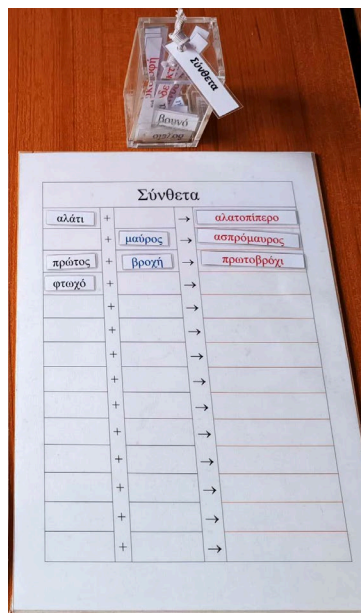 Σύνθετα
βουνό
Σύνθετα
αλάτι + → αλατοπίπερο
+ μαύρος → ασπρόμαυρος
πρώτος + βροχή → πρωτοβρόχι
φτωχό + →
+ →
+ →
+ →
+ →
+ →
+ →
+ →
+ →
+ →
+ →